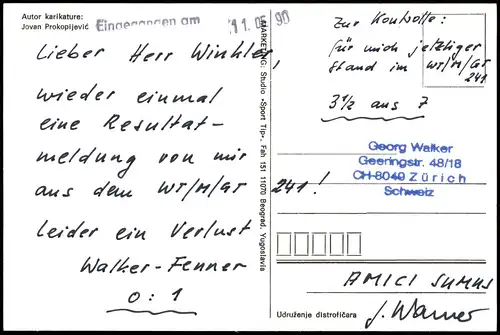 Autor karikature:
Jovan Prokopijević
Eingegangen am
Lieber Herr Winkler!
wieder einmal
eine Resultat-
meldung von mir
aus dem WT/M/GT 241!
leider ein Verlust
Walker-Fenner
0 : 1
MARKETING: Studio «Sport Tip», Fah 151 11070 Beograd, Yugoslavia
Zur Kontrolle:
für mich jetziger
Stand im WT/M/GT
241
3½ aus 7
Georg Walker
Geeringstr. 48/18
CH-8049 Zürich
Schweiz
AMICI SUMUS
Udruženje distrofičara